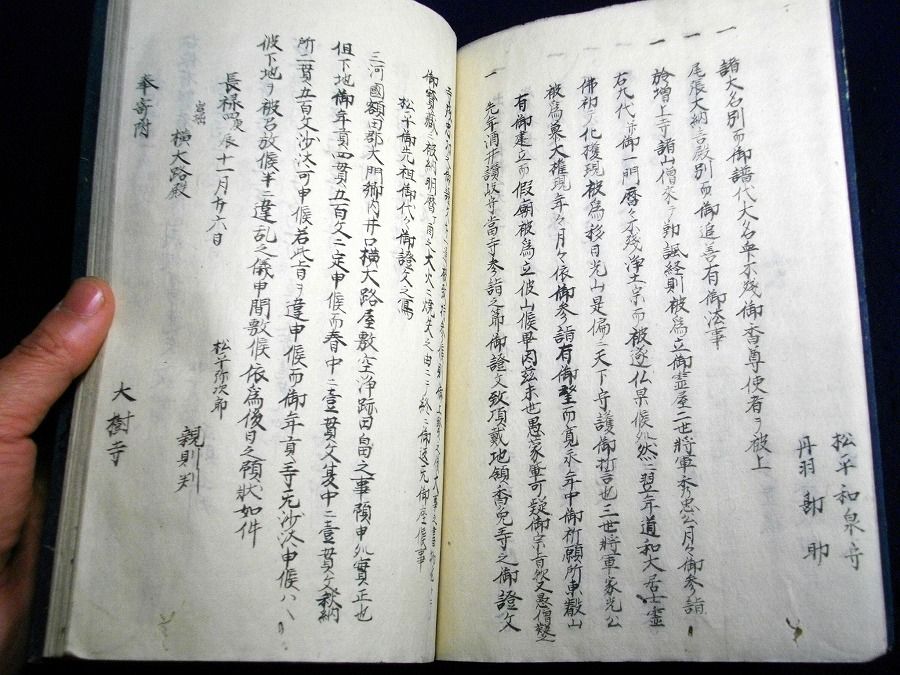 松平和泉守
丹羽勘助
一 諸大名別而御譜代大名衆不残御香尊使者ヲ被上
一 尾張大納言殿別而御追善有御法事
一 於増上寺諸山僧衆ヲ勤諷経則被為立御霊屋二世将軍秀忠公月々御参詣
一 右九代亦御一門暦々不残浄土宗而被遂仏果候処然ニ翌年道和大居士霊
佛初人化権現被為移日光山是偏ニ天下守護御祈也三世将軍家光公
被為東大権現年々月々依御参詣有御登而寛永年中御祈願所東叡山
有御建立而假廟被為立彼山候畢因茲末世愚家輩可疑御宗旨歟又愚僧
一 先年酒井讃岐守當寺参詣之節御證文致項戴地領香免寺之御證文
御寶蔵ニ被納明暦丁酉之大火ニ焼失之由ニ而終ニ御返无御座候事
松平御先祖御代々御證文之寫
三河國額田郡大門郷内井口横大路屋敷空浄跡田畠之事頼申処實正也
但下地御年貢四貫五百文ニ定申候而春中ニ壹貫文夏中ニ壹貫文秋納
所二貫五百文沙汰可申候若此旨ヲ違申候而御年貢等无沙汰申候ハヽ
彼下地ヲ被召放候半ニ違乱之儀申間敷候依為後日之預状如件
長禄四庚辰十一月廿六日
松平弥次郎
親則判
岩津
横大路殿
奉寄附
大樹寺